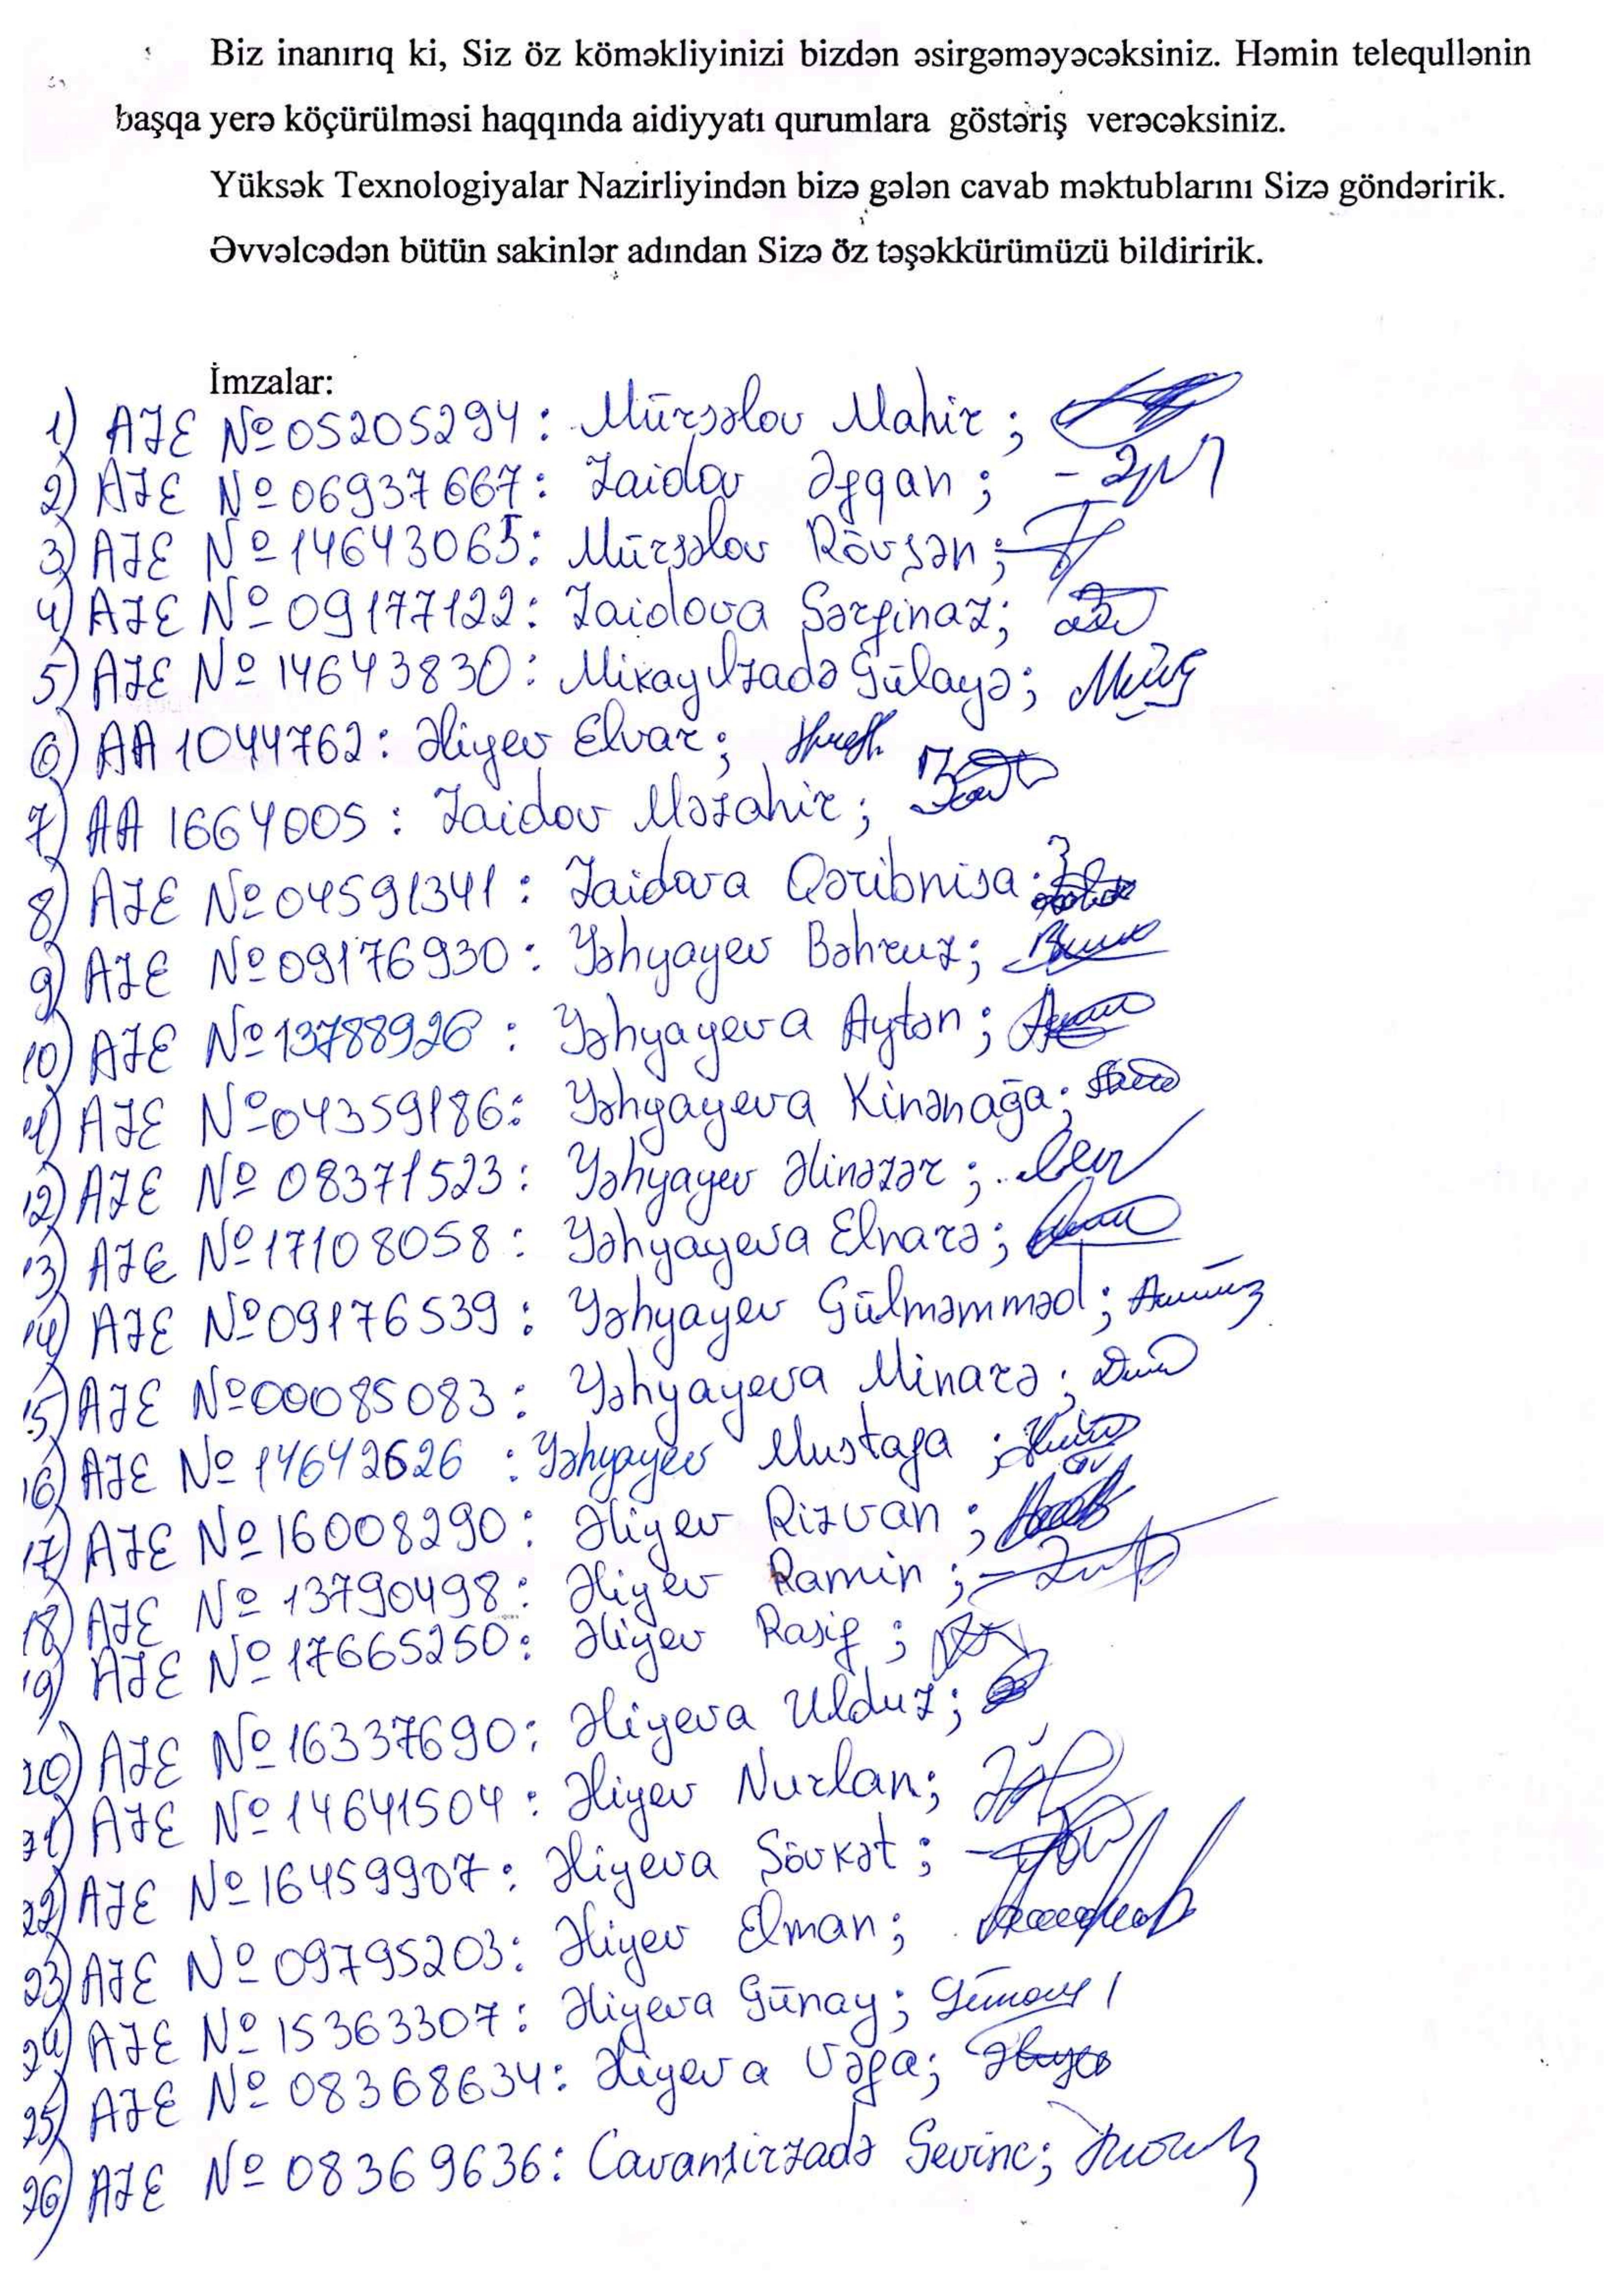 Biz inanırıq ki, Siz öz köməkliyinizi bizdən əsirgəməyəcəksiniz. Həmin telequllənin
başqa yerə köçürülməsi haqqında aidiyyatı qurumlara göstəriş verəcəksiniz.
Yüksək Texnologiyalar Nazirliyindən bizə gələn cavab məktublarını Sizə göndəririk.
Əvvəlcədən bütün sakinlər adından Sizə öz təşəkkürümüzü bildiririk.
İmzalar:
1) AZE № 05205294: Mürsəlov Mahir;
2) AZE № 06937667: Zaidov Əfqan;
3) AZE № 14643065: Mürsəlov Rövşən;
4) AZE № 09177122: Zaidova Sərfinaz;
5) AZE № 14643830: Mikayılzadə Gülayə;
6) AA 1044762: Əliyev Elvar;
7) AA 1664005: Zaidov Məzahir;
8) AZE № 04591341: Zaidova Qəribnisa;
9) AZE № 09176930: Yəhyayev Bəhruz;
10) AZE № 13788926: Yəhyayeva Aytən;
11) AZE № 04359186: Yəhyayeva Kinənağa;
12) AZE № 08371523: Yəhyayev Əlinəzər;
13) AZE № 17108058: Yəhyayeva Elnarə;
14) AZE № 09176539: Yəhyayev Gülməmməd;
15) AZE № 00085083: Yəhyayeva Minarə;
16) AZE № 14642626: Yəhyayev Mustafa;
17) AZE № 16008290: Əliyev Rizvan;
18) AZE № 13790498: Əliyev Ramin;
19) AZE № 17665250: Əliyev Rasif;
20) AZE № 16337690: Əliyeva Ulduz;
21) AZE № 14641504: Əliyev Nurlan;
22) AZE № 16459907: Əliyeva Şövkət;
23) AZE № 09795203: Əliyev Elman;
24) AZE № 15363307: Əliyeva Günay;
25) AZE № 08368634: Əliyeva Vəfa;
26) AZE № 08369636: Cavanşirzadə Sevinc;